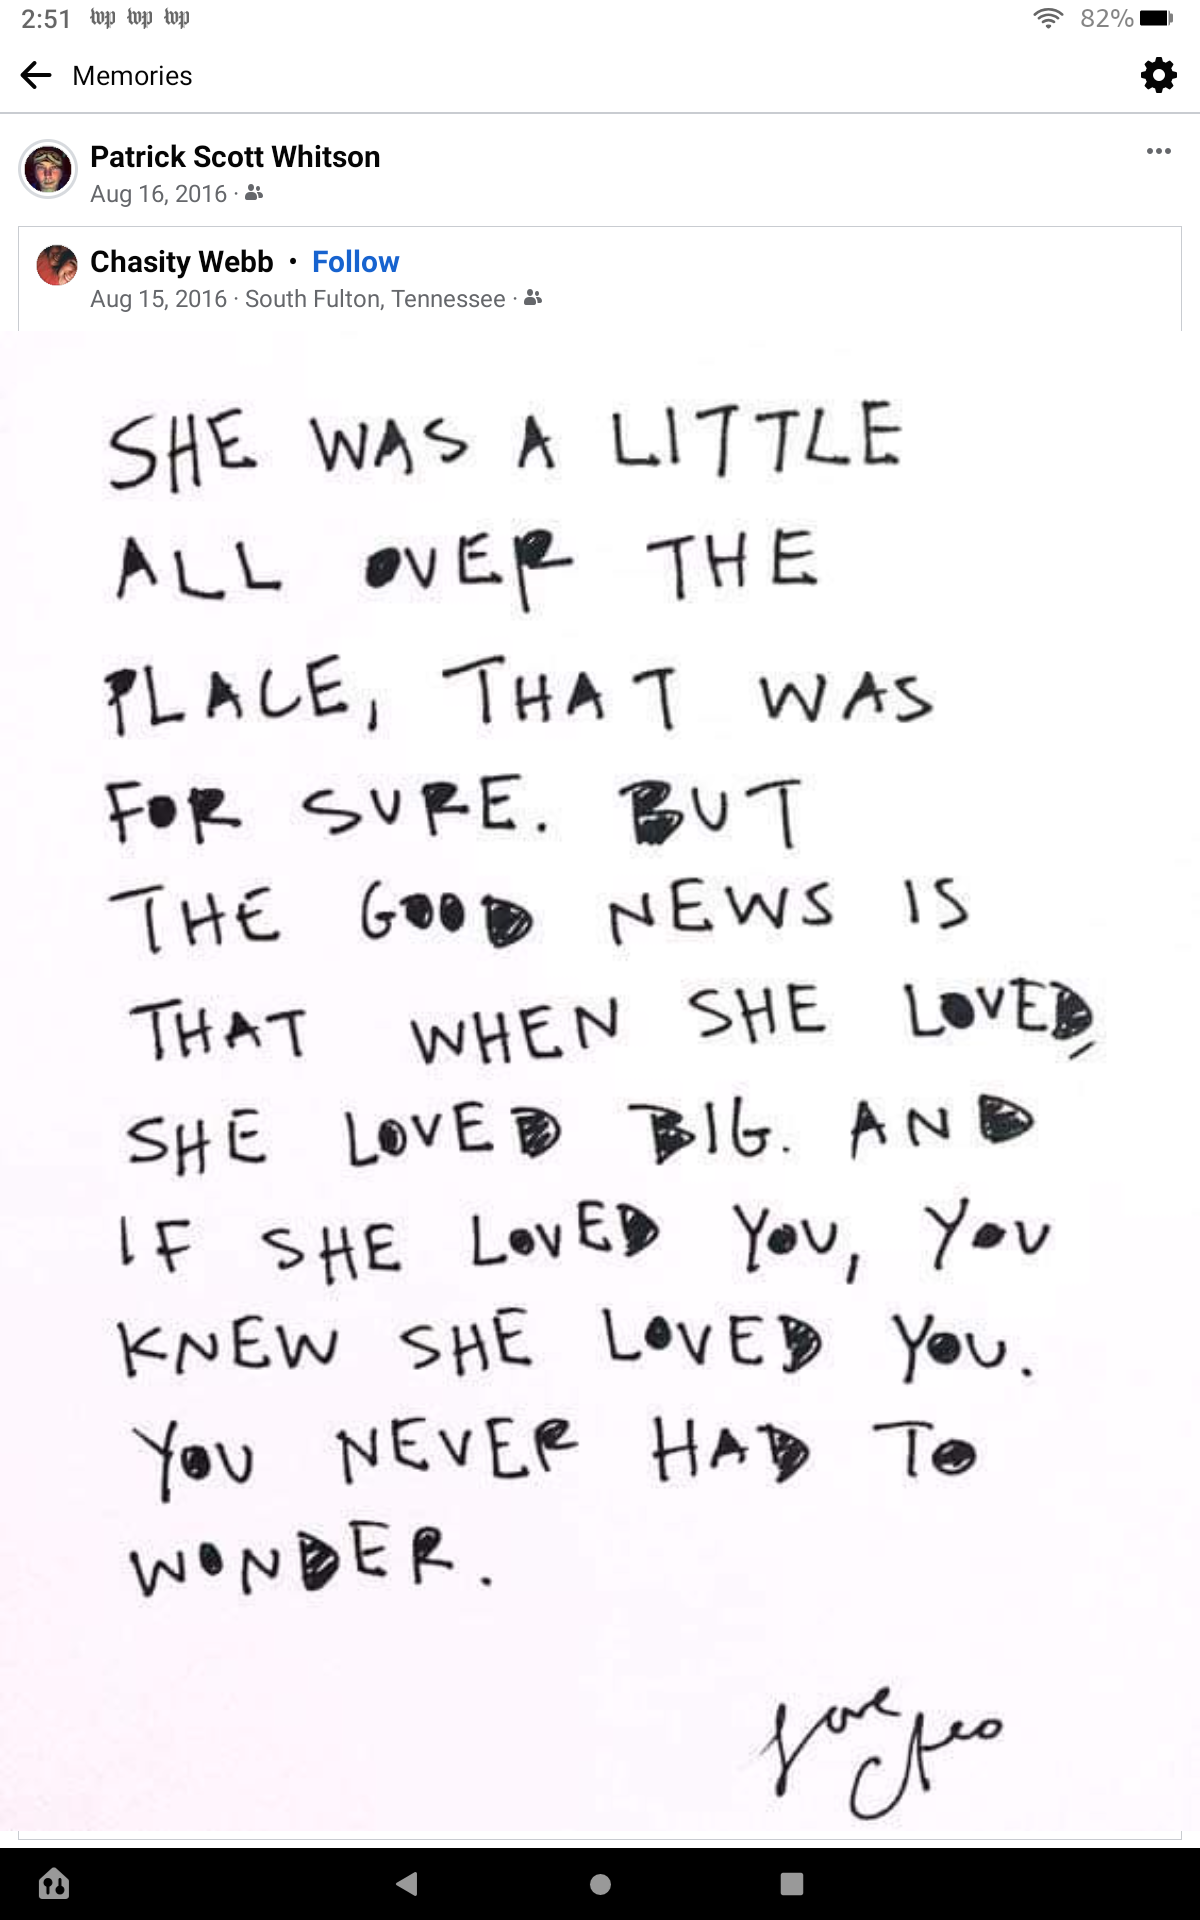 2:51 wp wp wp 82%
Memories
Patrick Scott Whitson
Aug 16, 2016 ·
Chasity Webb • Follow
Aug 15, 2016 · South Fulton, Tennessee ·
SHE WAS A LITTLE
ALL OVER THE
PLACE, THAT WAS
FOR SURE. BUT
THE GOOD NEWS IS
THAT WHEN SHE LOVED,
SHE LOVED BIG. AND
IF SHE LOVED YOU, YOU
KNEW SHE LOVED YOU.
YOU NEVER HAD TO
WONDER.
Love
Cleo